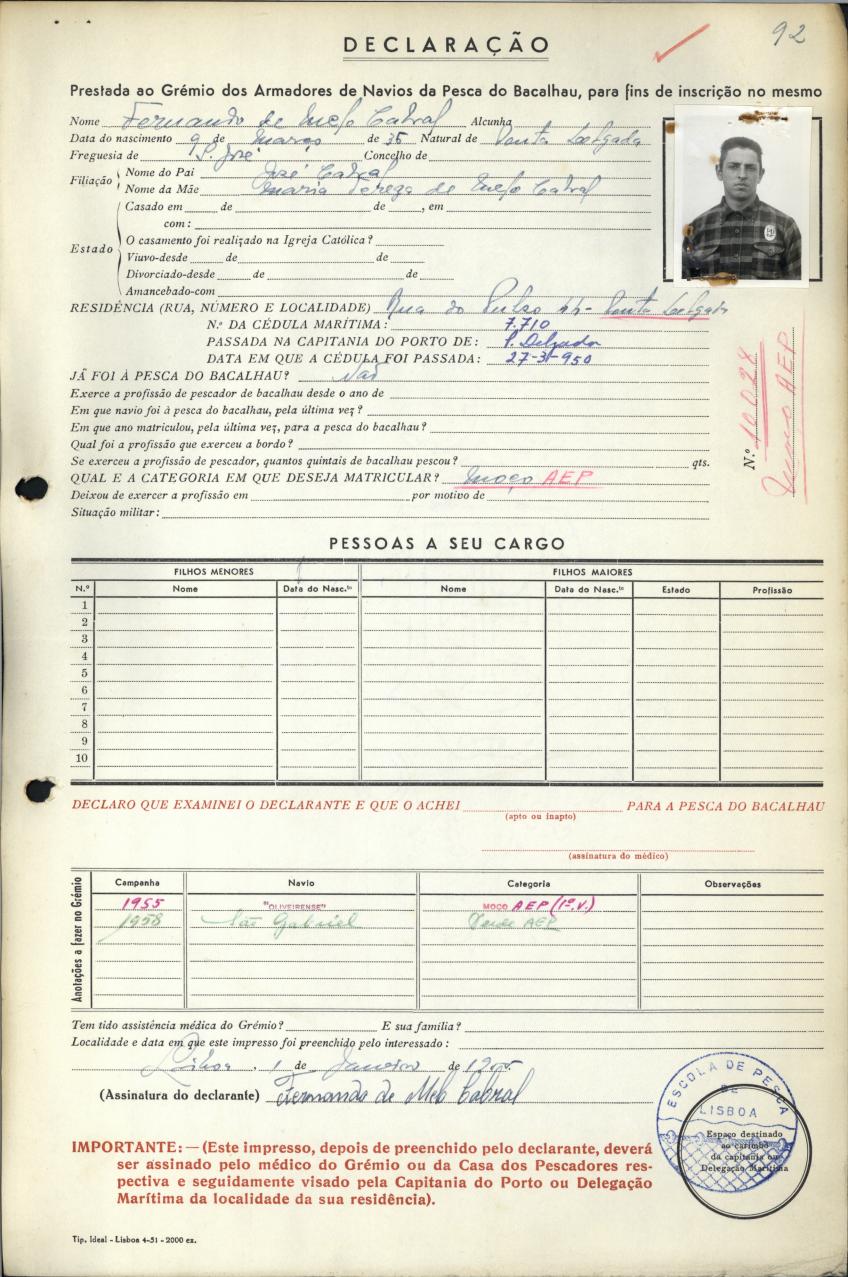 92
DECLARAÇÃO
Prestada ao Grémio dos Armadores de Navios da Pesca do Bacalhau, para fins de inscrição no mesmo
Nome Fernando de Melo Cabral Alcunha
Data do nascimento 9 de Março de 35 Natural de Ponta Delgada
Freguesia de S. José Concelho de
Filiação
Nome do Pai José Cabral
Nome da Mãe Maria Tereza de Melo Cabral
Estado
Casado em de de , em
com:
O casamento foi realizado na Igreja Católica?
Viuvo-desde de de
Divorciado-desde de de
Amancebado-com
RESIDÊNCIA (RUA, NÚMERO E LOCALIDADE) Rua do 44 - Ponta Delgada
N.º DA CÉDULA MARÍTIMA: 7.710
PASSADA NA CAPITANIA DO PORTO DE: P. Delgada
DATA EM QUE A CÉDULA FOI PASSADA: 27-3-950
JÁ FOI À PESCA DO BACALHAU? Não
Exerce a profissão de pescador de bacalhau desde o ano de
Em que navio foi à pesca do bacalhau, pela última vez?
Em que ano matriculou, pela última vez, para a pesca do bacalhau?
Qual foi a profissão que exerceu a bordo?
Se exerceu a profissão de pescador, quantos quintais de bacalhau pescou? qts.
QUAL E A CATEGORIA EM QUE DESEJA MATRICULAR? Moço AEP
Deixou de exercer a profissão em por motivo de
Situação militar:
N.º 10.028
Moço AEP
PESSOAS A SEU CARGO
FILHOS MENORES FILHOS MAIORES
N.º Nome Data do Nasc.to Nome Data do Nasc.to Estado Profissão
1
2
3
4
5
6
7
8
9
10
DECLARO QUE EXAMINEI O DECLARANTE E QUE O ACHEI PARA A PESCA DO BACALHAU
(apto ou inapto)
(assinatura do médico)
Anotações a fazer no Grémio
Campanha Navio Categoria Observações
1955 "OLIVEIRENSE" MOÇO AEP (1ª. V.)
1958 São Gabriel Verde AEP
Tem tido assistência médica do Grémio? E sua família?
Localidade e data em que este impresso foi preenchido pelo interessado:
Lisboa, 1 de Janeiro de 195
(Assinatura do declarante) Fernando de Melo Cabral
ESCOLA DE PESCA
DE
LISBOA
Espaço destinado
ao carimbo
da capitania ou
Delegação Marítima
IMPORTANTE: — (Este impresso, depois de preenchido pelo declarante, deverá
ser assinado pelo médico do Grémio ou da Casa dos Pescadores res-
pectiva e seguidamente visado pela Capitania do Porto ou Delegação
Marítima da localidade da sua residência).
Tip. Ideal - Lisboa 4-51 - 2000 ex.